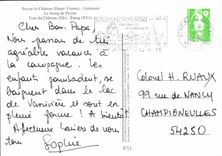 Peyrat-le-Château (Haute Vienne) - Limousin
Le bourg de Peyrat
Tour du Château (XIIe) - Étang (XVe)
Cher Bon-Papa,
Nous passons de très
agréables vacances à
la campagne. Les
enfants jouent, se
baignent dans le lac
de Vassivière et sont en
pleine forme ! A bientôt
Affectueux baisers de nous
tous
Sophie
Colonel H. RUAUX
99 rue de NANCY
CHAMPIGNEULLES
54250